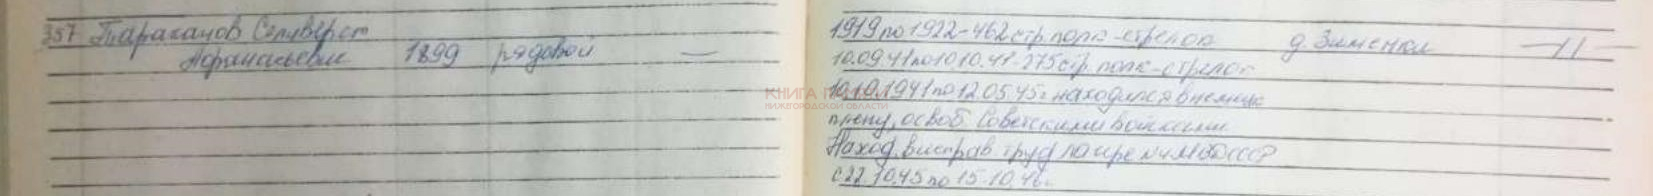 357 Тараканов Селиверст
Афанасьевич 1899 рядовой —
1919 по 1922-462 стр. полк-стрелок д. Зименки —11—
10.09.41 по 10.10.41-275 стр. полк-стрелок
10.10.1941 по 12.05.45г. находился в немецк
плену, освоб Советскими войсками
Наход. в исправ. труд лагере МВД СССР
с 22.10.45 по 15.10.46г.
КНИГА ПАМЯТИ
НИЖЕГОРОДСКОЙ ОБЛАСТИ